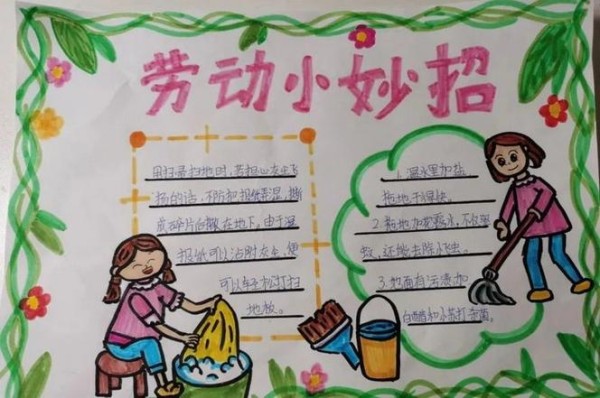 劳动小妙招
用扫帚扫地时,若担心灰尘飞
扬的话,不妨把报纸弄湿,撕
成碎片后撒在地下,由于湿
报纸可以沾附灰尘,便
可以轻松打扫
地板。
1.温水里加盐
拖地干得快。
2.拖地加花露水,不仅驱
蚊,还能去除小虫。
3.地面有污渍加
白醋和小苏打杀菌。